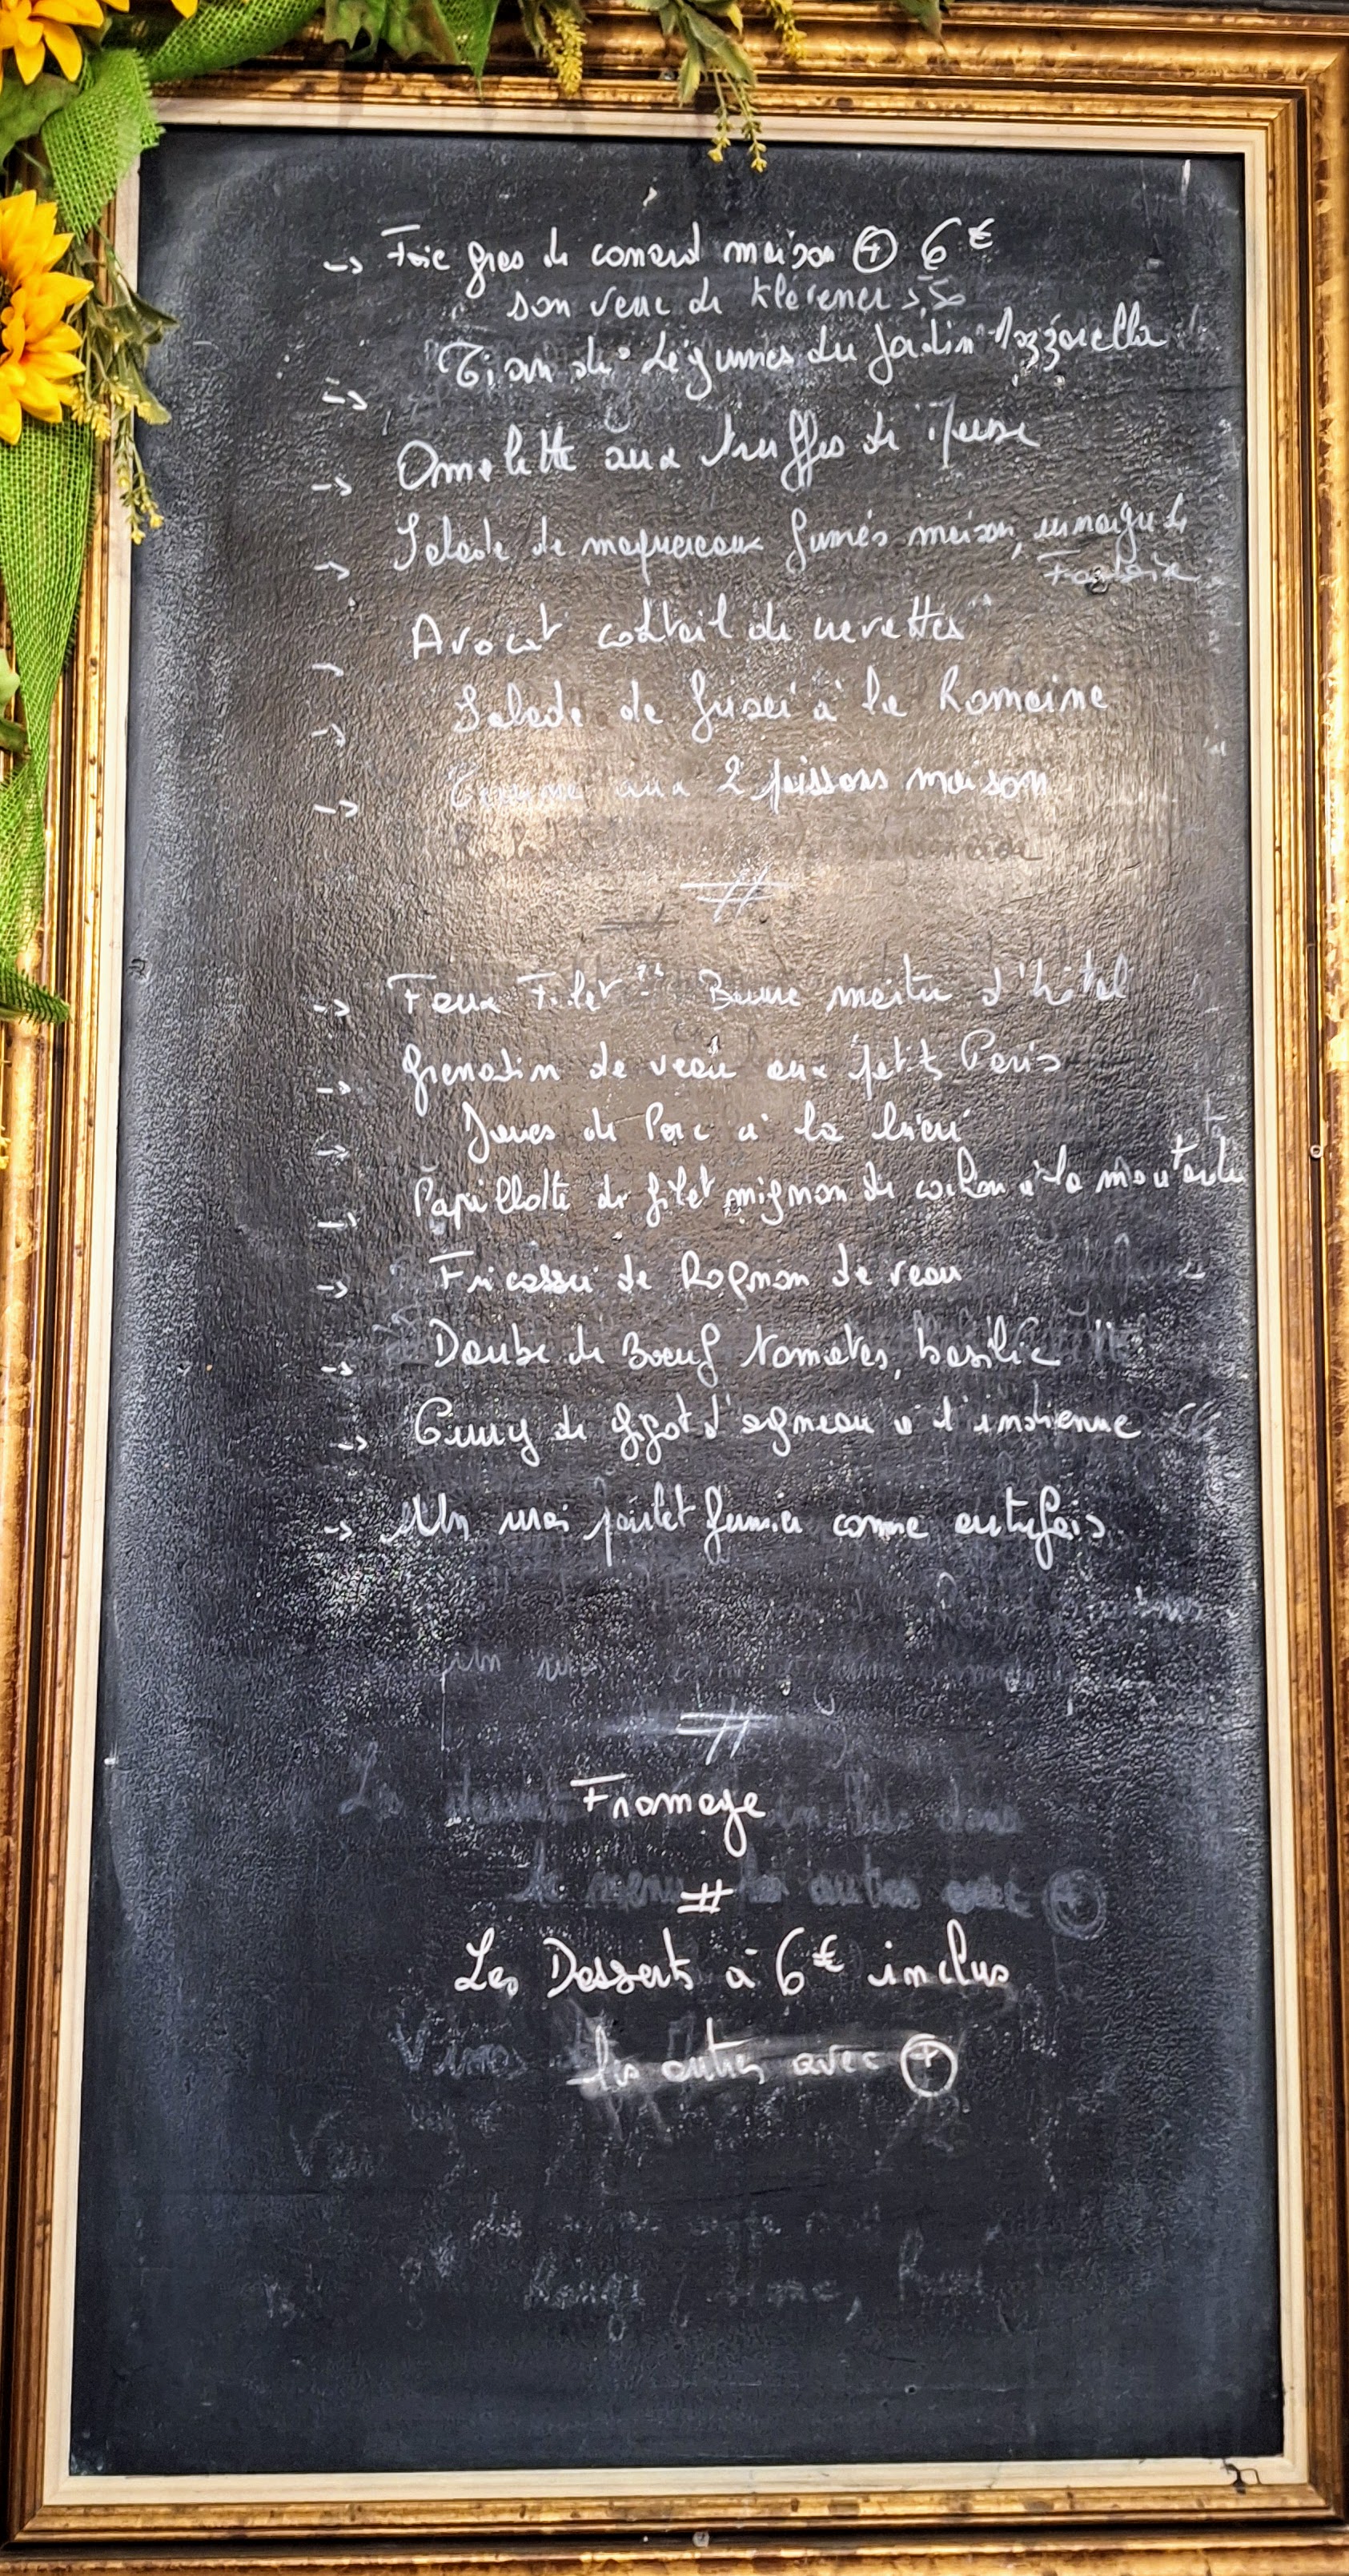 -> Foie gras de canard maison ⊕ 6€
son verre de Klevener 5,50
-> Tian de Légumes du Jardin Mozzarella
-> Omelette aux truffes de Meuse
-> Salade de maquereaux fumés maison, vinaigre de
-> Avocat cocktail de crevettes
-> Salade de frisée à la Romaine
-> Terrine aux 2 poissons maison
#
-> Faux Filet Beurre maitre d'hôtel
-> Grenadin de veau aux petits Paris
-> Joues de Porc à la bière
-> Papillotte de filet mignon de cochon à la moutarde
-> Fricassée de Rognon de veau
-> Daube de Boeuf tomates, basilic
-> Curry de gigot d'agneau à l'indienne
-> Un vrai poulet fermier comme autrefois
#
Fromage
#
Les Desserts à 6€ inclus
les autres avec ⊕